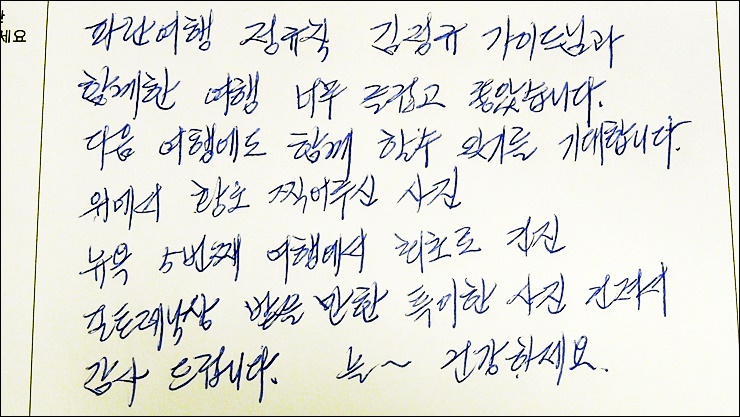 세요
파란여행 정규직 김광규 가이드님과
함께한 여행 너무 즐겁고 좋았습니다.
다음 여행에도 함께 할수 있기를 기대합니다.
위에서 항로 찍어주신 사진
뉴욕 5번째 여행에서 최초로 건진
포토제닉상 받을 만한 특이한 사진 건져서
감사 드립니다. 늘~ 건강하세요.